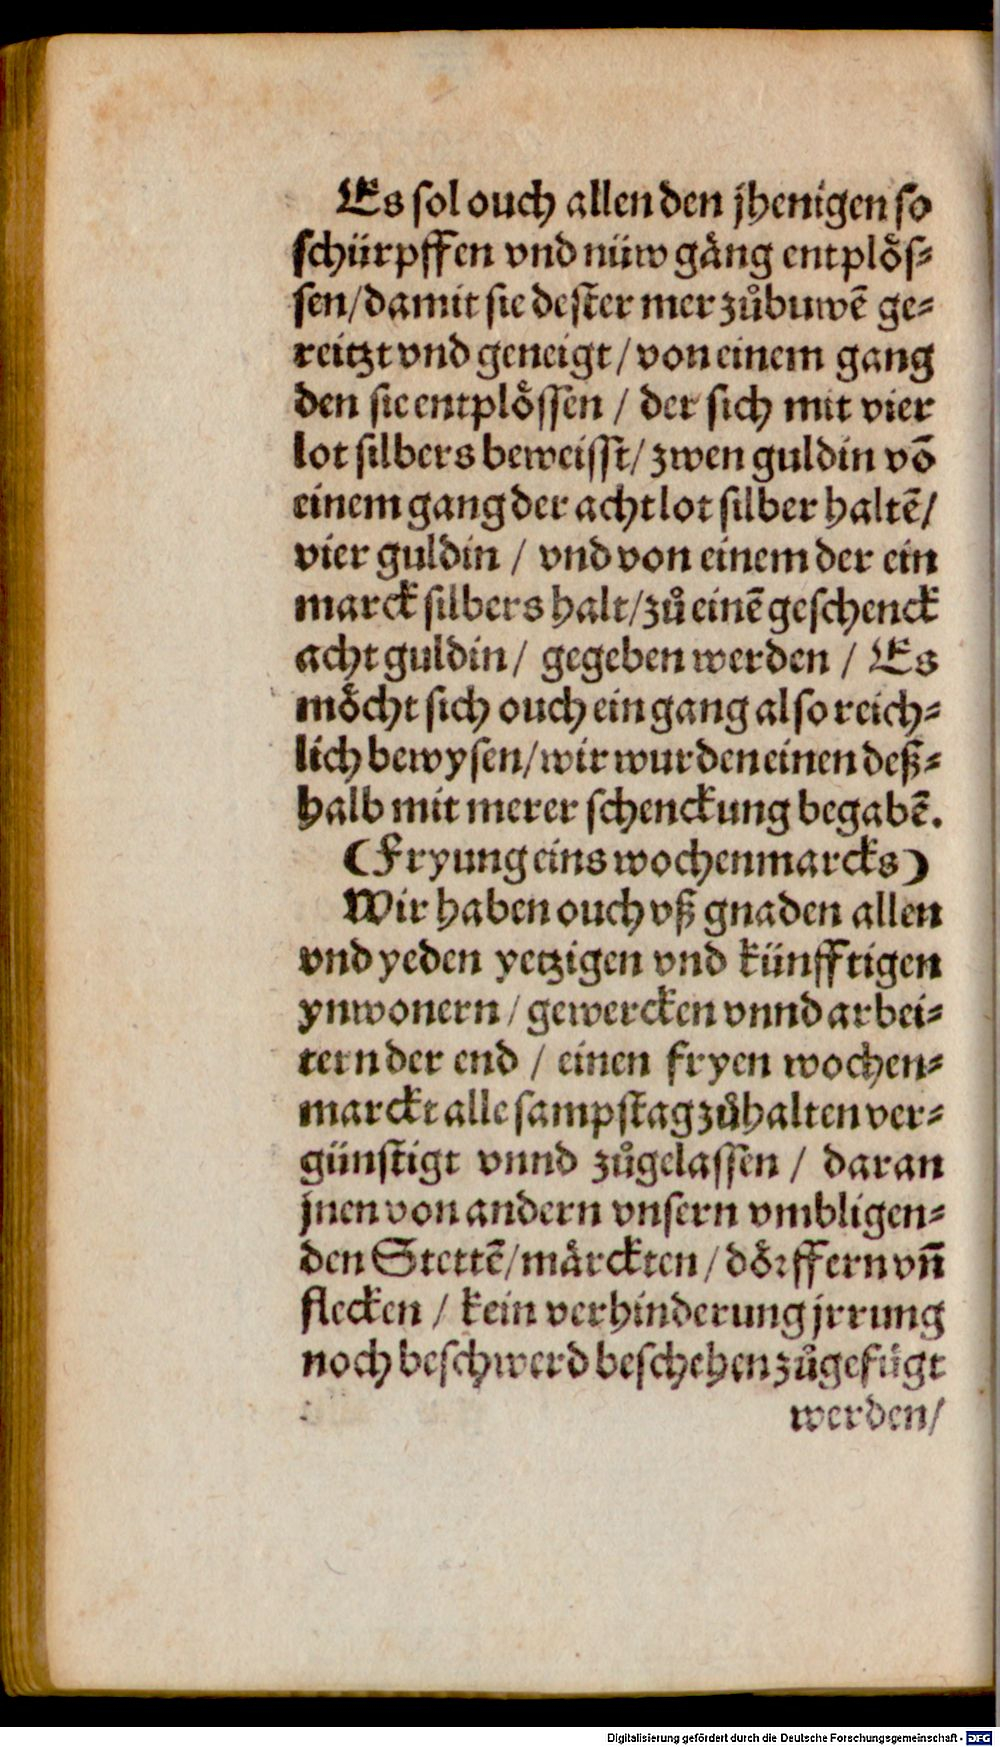 Es sol ouch allen den jhenigen so
schürpffen vnd nüw gaͤng entploͤs⸗
sen/damit sie dester mer zuͦbuwē ge⸗
reitzt vnd geneigt/von einem gang
den sie entploͤssen / der sich mit vier
lot silbers beweisst/zwen guldin vō
einem gang der acht lot silber haltē/
vier guldin / vnd von einem der ein
marck silbers halt/zuͦ einē geschenck
acht guldin/ gegeben werden / Es
moͤcht sich ouch ein gang also reich⸗
lich bewysen/wir wurden einen deß⸗
halb mit merer schenckung begabē.
(Fryung eins wochenmarcks)
Wir haben ouch vß gnaden allen
vnd yeden yetzigen vnd künfftigen
ynwonern/gewercken vnnd arbei⸗
tern der end / einen fryen wochen⸗
marckt alle sampstag zuͦhalten ver⸗
günstigt vnnd zuͦgelassen / daran
jnen von andern vnsern vmbligen⸗
den Stettē/maͤrckten/doͤrffern vn̄
flecken / kein verhinderung jrrung
noch beschwerd beschehen zuͦgefuͤgt
werden/
Digitalisierung gefördert durch die Deutsche Forschungsgemeinschaft - DFG